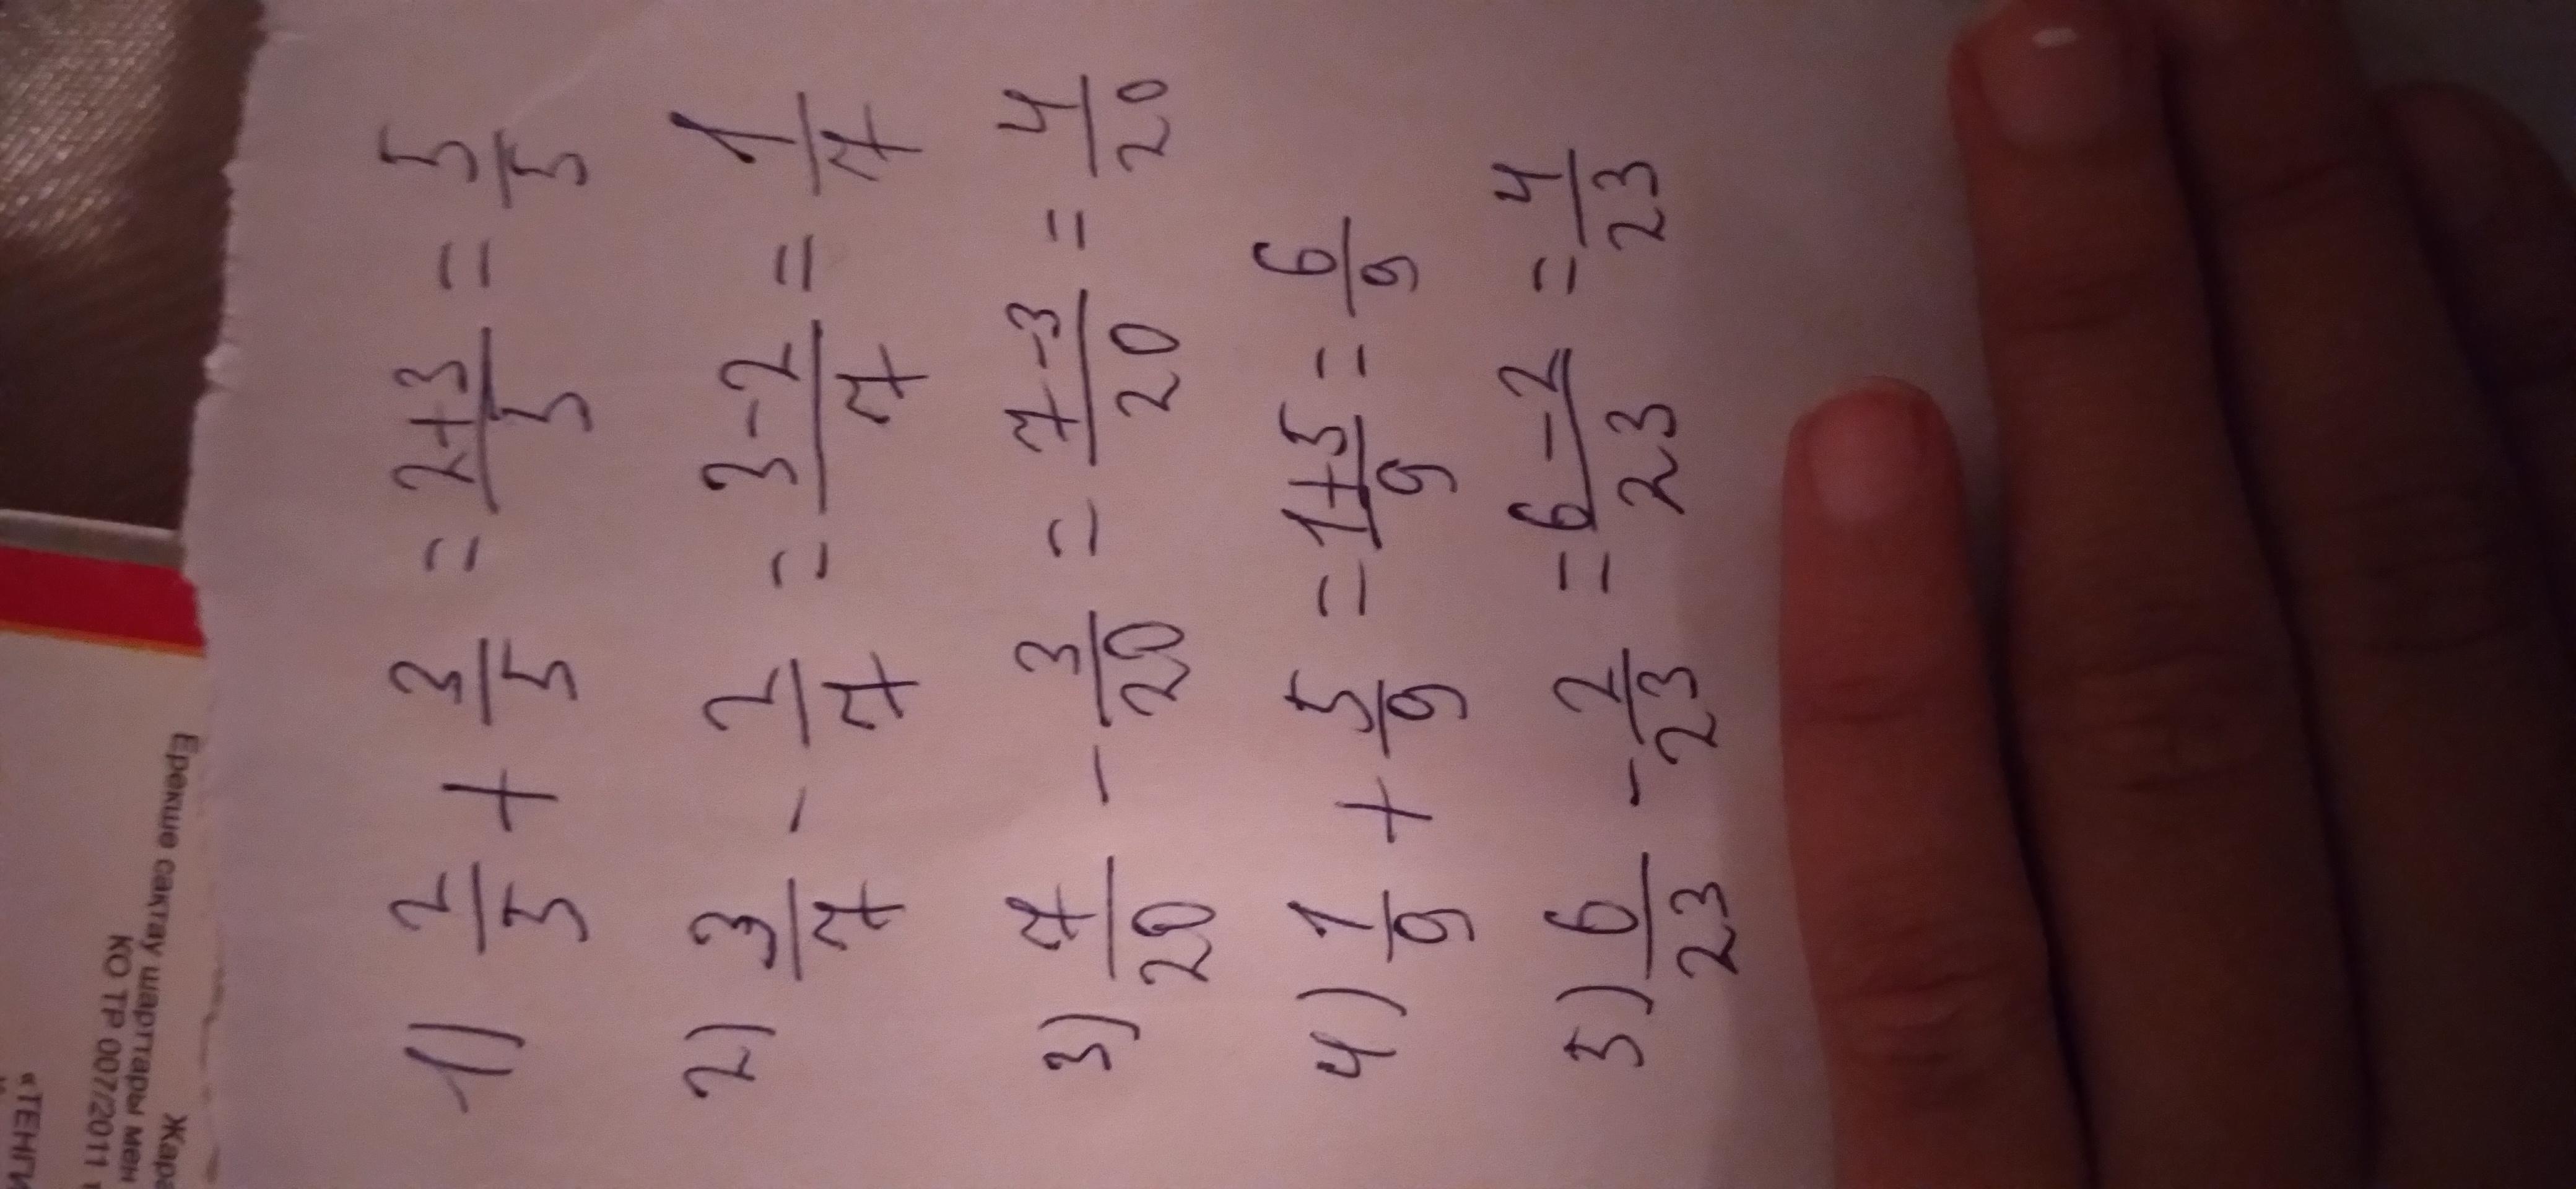 1) 2/5 + 3/5 = 2+3/5 = 5/5
2) 3/7 - 2/7 = 3-2/7 = 1/7
3) 7/20 - 3/20 = 7-3/20 = 4/20
4) 1/9 + 5/9 = 1+5/9 = 6/9
5) 6/23 - 2/23 = 6-2/23 = 4/23
Ерекше сақтау шарттары мен
КО ТР 007/2011